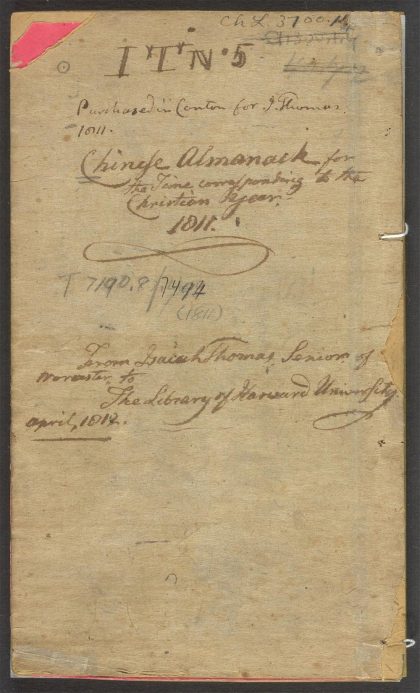 Ch L 3700.14
I T N. 5
Purchased in Canton for I Thomas.
1811.
Chinese Almanack for
the Time corresponding to the
Christian Year.
1811.
T 7190.8/7494
(1811)
From Isaiah Thomas, Senior, of
Worcester, to
The Library of Harvard University.
april, 1812.